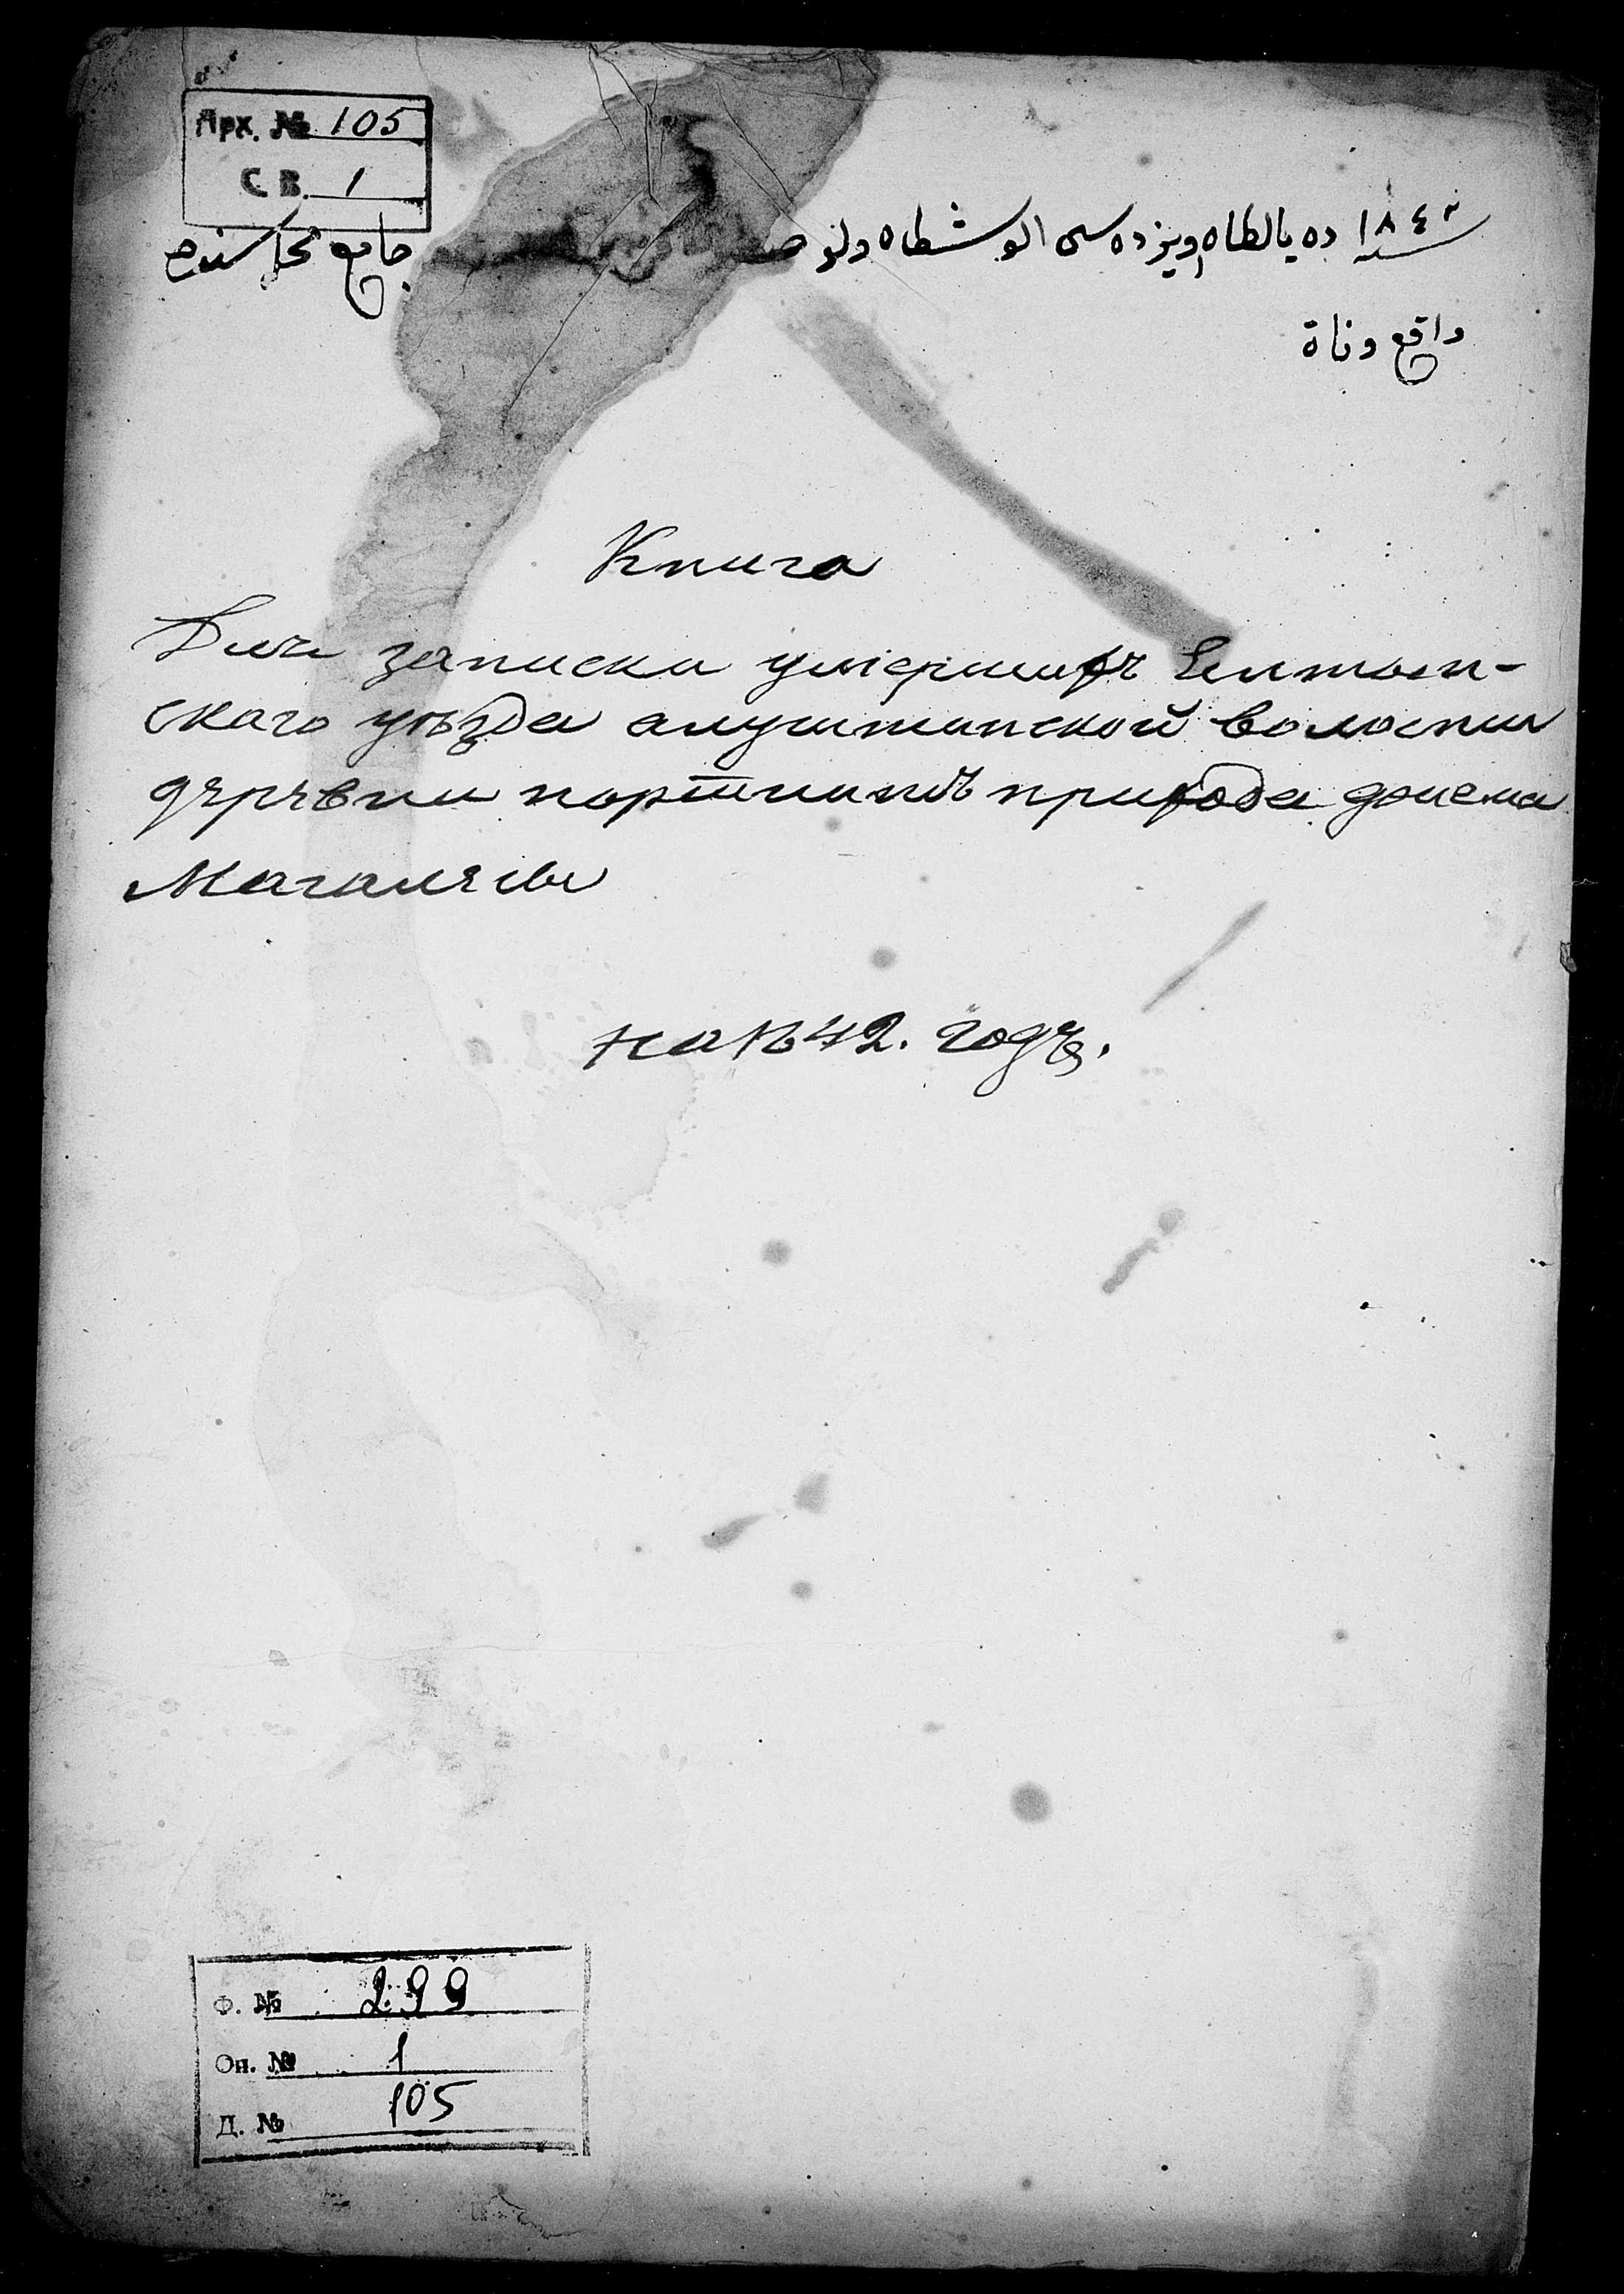 Арх. № 105
СВ. 1
سنه ١٨٤٢ ده يالطاه اويزده سى الوشطاه ولوص جامع محله سنده
واقع وفاة
Книга
Для записки умершихъ Ялтин-
скаго уѣзда алуштинской волости
деревни прихода джема
Магалеси
на 1842. годъ.
Ф. № 299
Оп. № 1
Д. № 105